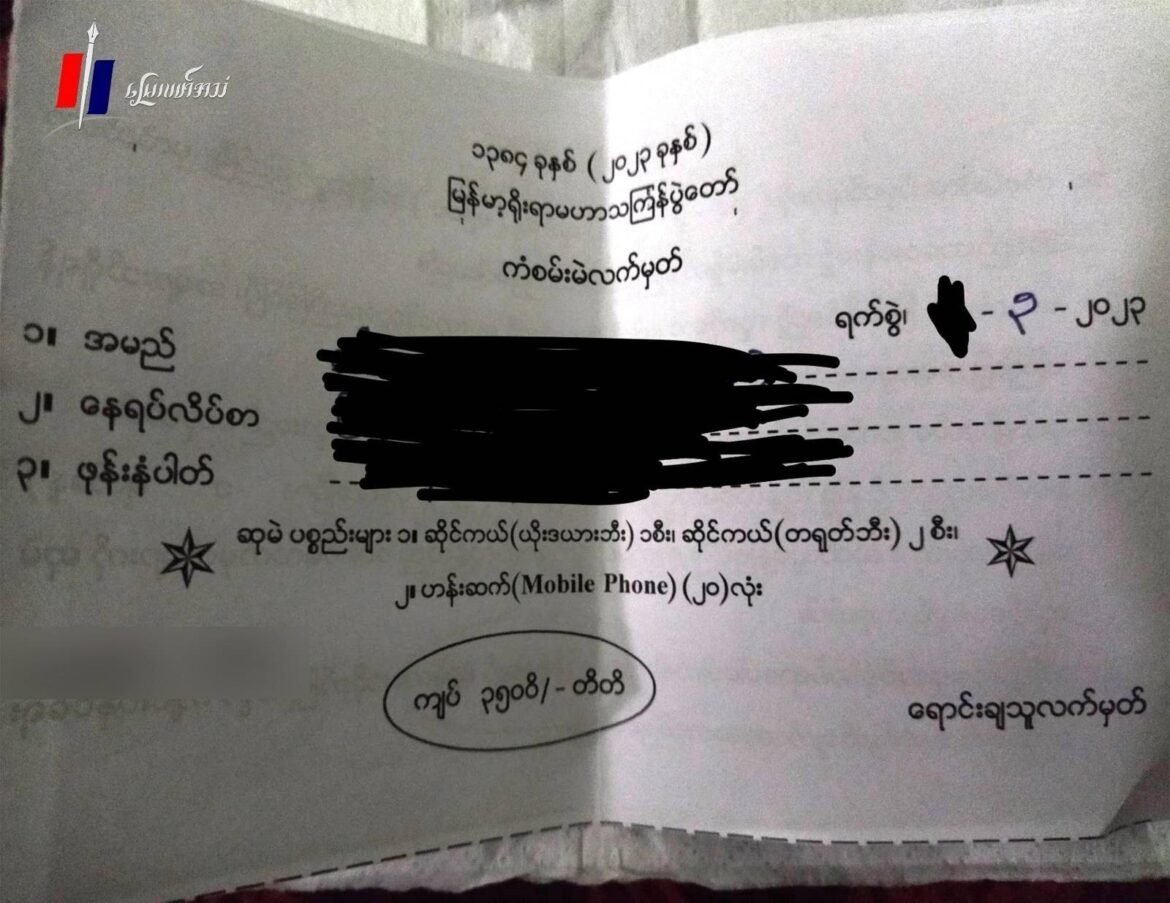 မြေလတ်အသံ
၁၃၈၄ ခုနှစ် (၂၀၂၃ ခုနှစ်)
မြန်မာ့ရိုးရာမဟာသင်္ကြန်ပွဲတော်
ကံစမ်းမဲလက်မှတ်
ရက်စွဲ၊ - ၃ - ၂၀၂၃
၁။ အမည်
၂။ နေရပ်လိပ်စာ
၃။ ဖုန်းနံပါတ်
ဆုမဲ ပစ္စည်းများ ၁။ ဆိုင်ကယ်(ယိုးဒယားဘီး) ၁စီး၊ ဆိုင်ကယ်(တရုတ်ဘီး) ၂ စီး၊
၂။ ဟန်းဆက်(Mobile Phone) (၂၀)လုံး
ကျပ် ၃၅၀၀ိ/- တိတိ
ရောင်းချသူလက်မှတ်